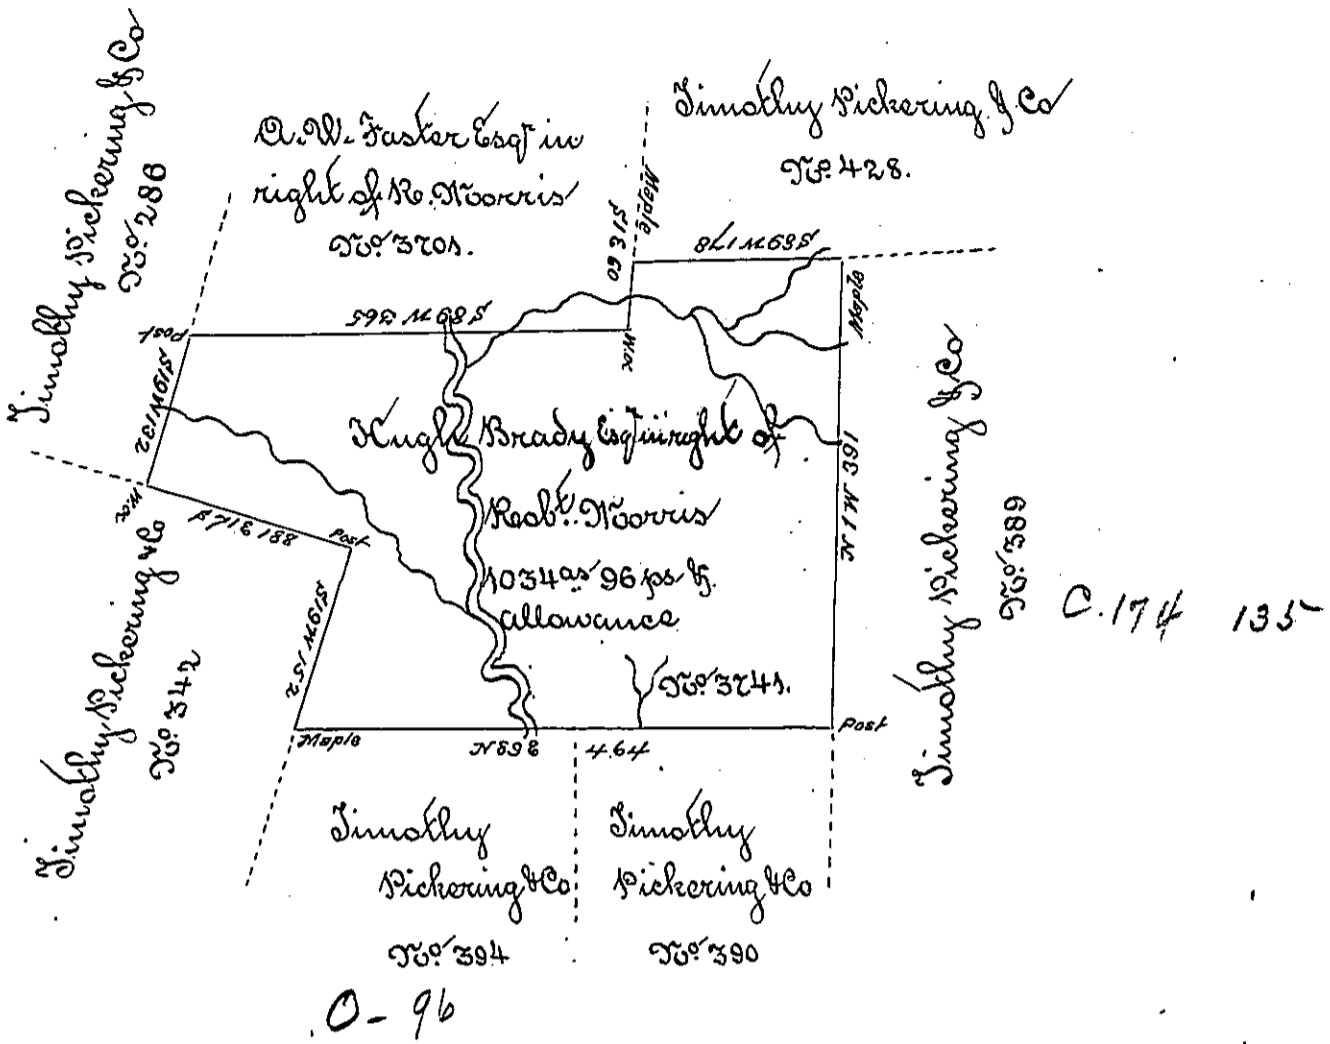 Timothy Pickering & Co
No. 286
A. W. Foster Esqr in
right of R. Morris
No. 3701.
Timothy Pickering & Co
No. 428.
Maple
S 1 E 60
S 89 W 178
Maple
Post
S 89 W 365
W.O.
S 19 W 132
W.O.
S 71 E 188
Post
S 19 W 152
Hugh Brady Esqr in right of
Robt. Morris
1034 as 96 ps &
allowance
No. 3741.
N 1 W 391
Timothy Pickering & Co
No. 389
C. 174 135
Timothy Pickering & Co
No. 342
Maple
N 89 E 464
Post
Timothy
Pickering & Co
No. 394
Timothy
Pickering & Co
No. 390
O - 96